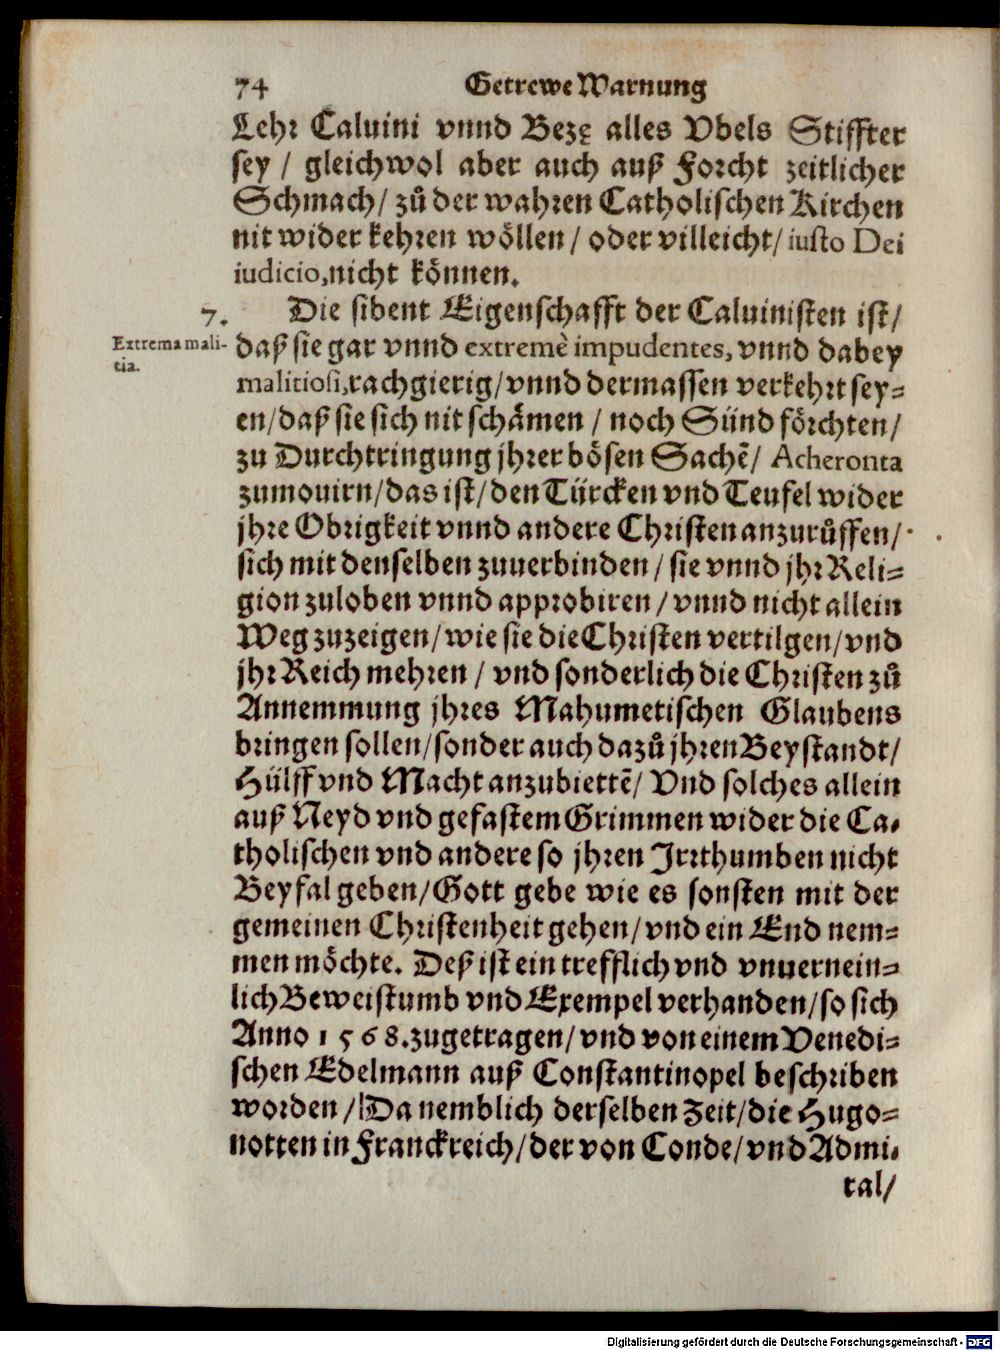 74 Getrewe Warnung
Lehr Caluini vnnd Bezę alles Vbels Stiffter
sey / gleichwol aber auch auß Forcht zeitlicher
Schmach/ zů der wahren Catholischen Kirchen
nit wider kehren wöllen / oder villeicht/ iusto Dei
iudicio, nicht können.
7. Die sibent Eigenschafft der Caluinisten ist/
Extrema mali-
tia.
daß sie gar vnnd extremè impudentes, vnnd dabey
malitiosi, rachgierig/ vnnd dermassen verkehrt sey-
en/ daß sie sich nit schämen / noch Sünd förchten/
zu Durchtringung jhrer bösen Sachẽ/ Acheronta
zumouirn/ das ist/ den Türcken vnd Teufel wider
jhre Obrigkeit vnnd andere Christen anzurůffen/
sich mit denselben zuuerbinden / sie vnnd jhr Reli-
gion zuloben vnnd approbiren / vnnd nicht allein
Weg zuzeigen/ wie sie die Christen vertilgen/ vnd
jhr Reich mehren / vnd sonderlich die Christen zů
Annemmung jhres Mahumetischen Glaubens
bringen sollen/ sonder auch dazů jhren Beystandt/
Hülff vnd Macht anzubiettẽ/ Vnd solches allein
auß Neyd vnd gefastem Grimmen wider die Ca-
tholischen vnd andere so jhren Irrthumben nicht
Beyfal geben/ Gott gebe wie es sonsten mit der
gemeinen Christenheit gehen/ vnd ein End nem-
men möchte. Deß ist ein trefflich vnd vnuernein-
lich Beweistumb vnd Exempel verhanden/ so sich
Anno 1568. zugetragen/ vnd von einem Venedi-
schen Edelmann auß Constantinopel beschriben
worden / Da nemblich derselben Zeit/ die Hugo-
notten in Franckreich/ der von Conde/ vnd Admi-
ral/
Digitalisierung gefördert durch die Deutsche Forschungsgemeinschaft - DFG